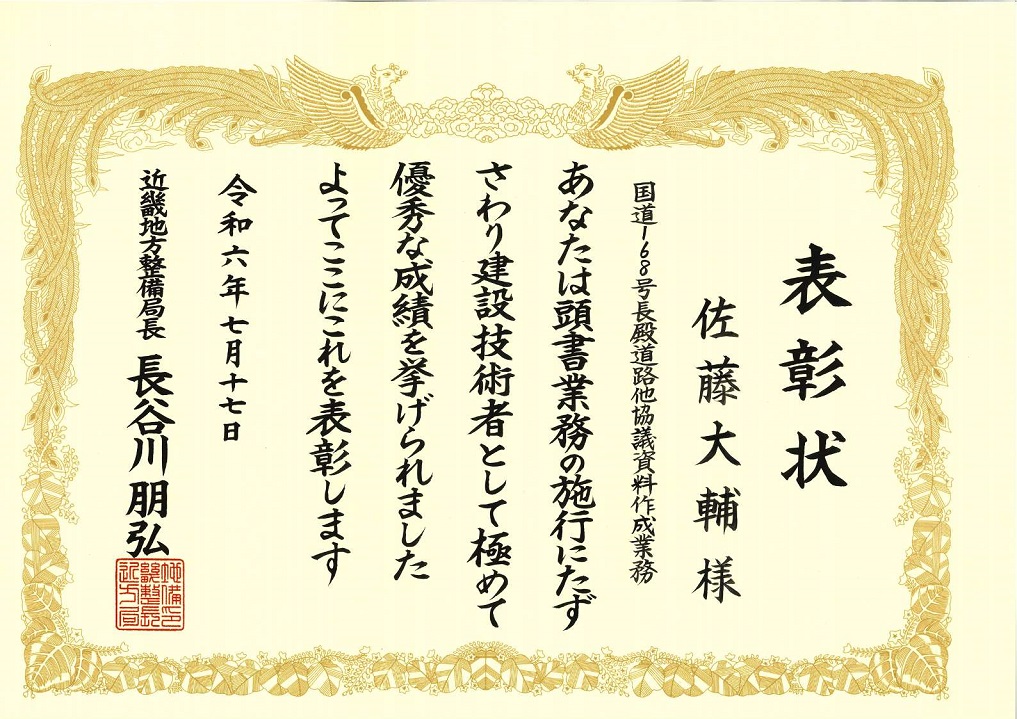 表彰状
佐藤大輔様
国道168号長殿道路他協議資料作成業務
あなたは頭書業務の施行にたず
さわり建設技術者として極めて
優秀な成績を挙げられました
よってここにこれを表彰します
令和六年七月十七日
近畿地方整備局長 長谷川朋弘